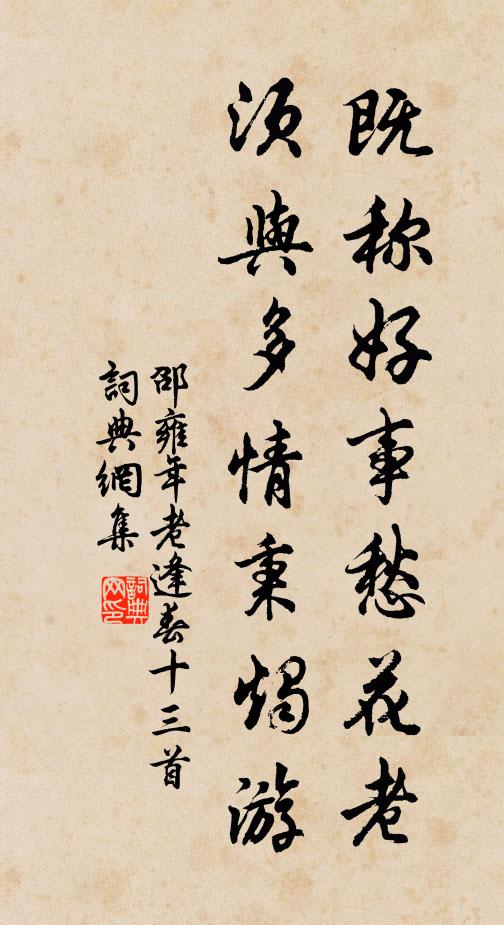 既称好事愁花老
须與多情秉烛游
邵雍年老逢春十三首
詞典網集
詞典网印